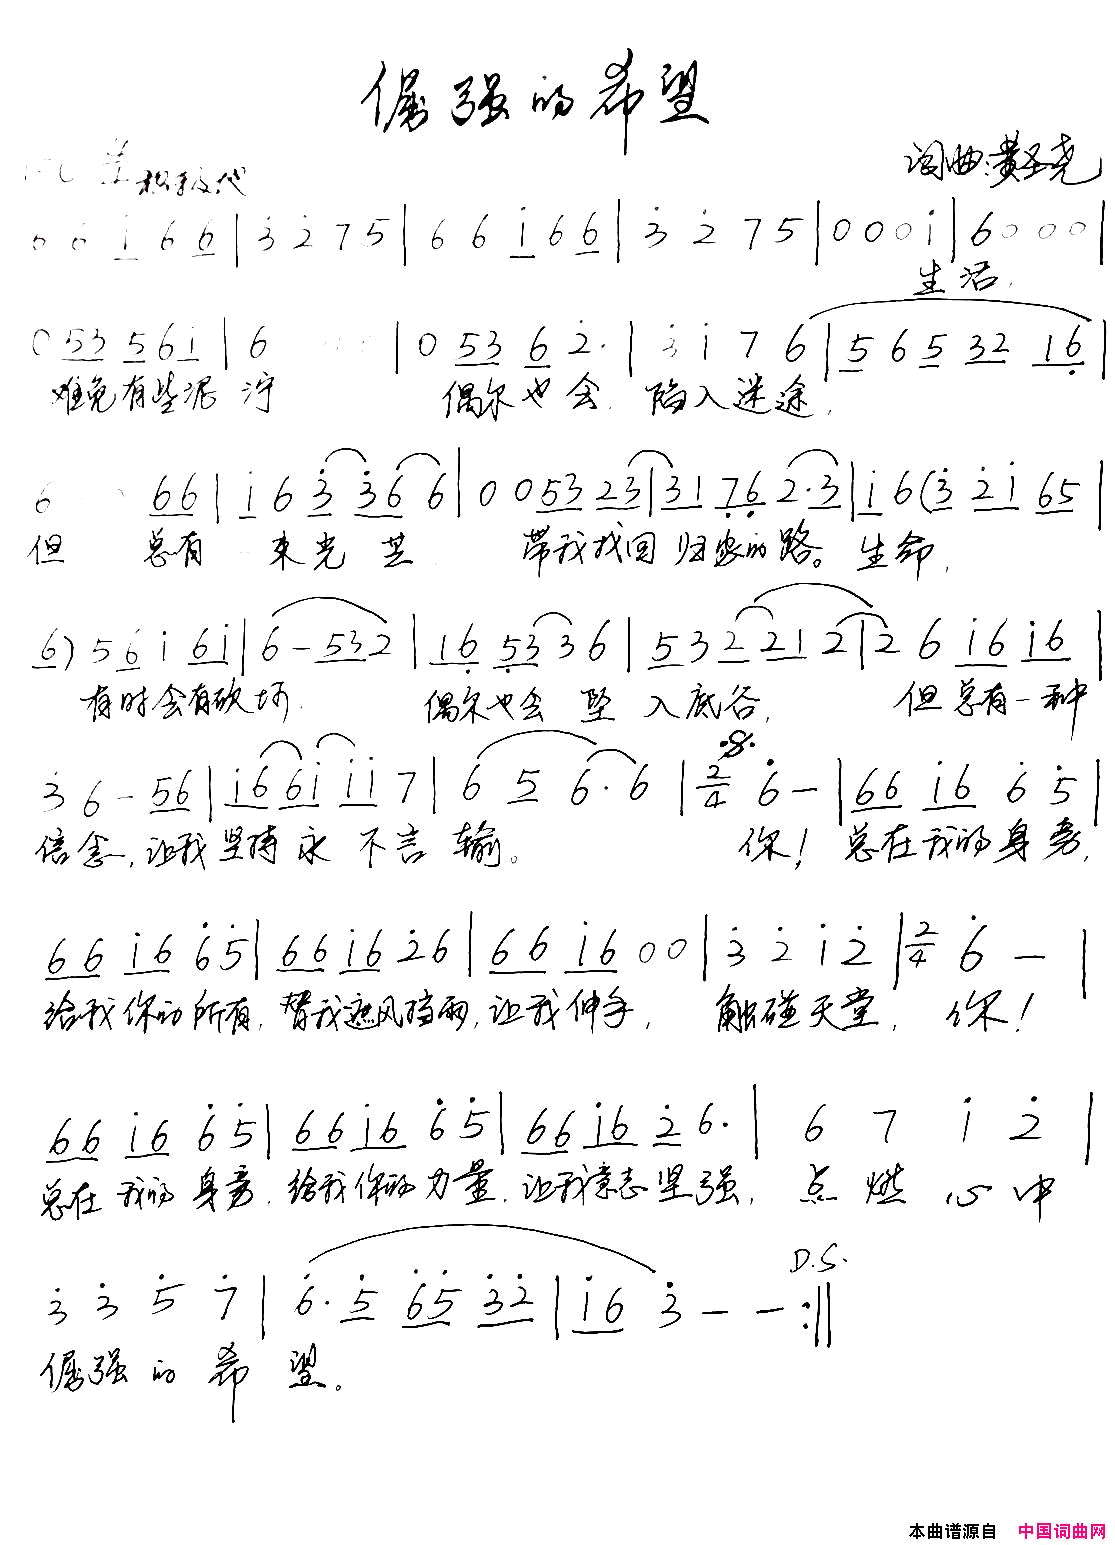 倔强的希望
词曲:黄圣尧
6 6 i 6 6 | 3 2 7 5 | 6 6 i 6 6 | 3 2 7 5 | 0 0 0 i | 6 0 0 0 |
生活,
0 53 5 6 i | 6 | 0 53 6 2· | 3 i 7 6 | 5 6 5 32 16 |
难免有些泥泞 偶尔也会 陷入迷途,
6 66 | i 6 3 36 6 | 0 0 53 23 | 31 76 2·3 | i 6 (3 2i 65 |
但 总有 束光芒 带我找回归家的路。生命,
6) 5 6 i 6i | 6 - 532 | 16 53 3 6 | 53 2 21 2 | 2 6 i6 i6 |
有时会有砍坷 偶尔也会 坠 入底谷, 但总有一种
3 6 - 56 | i6 6i ii 7 | 6 5 6· 6 | 2/4 6 - | 66 i6 6 5 |
信念,让我坚持永 不言 输。 你! 总在我的身旁,
66 i6 65 | 66 i6 26 | 66 i6 00 | 3 2 i 2 | 2/4 6 - |
给我你的所有,替我遮风挡雨,让我伸手, 触碰天堂, 你!
66 i6 65 | 66 i6 65 | 66 i6 2 6· | 6 7 i 2 |
总在 我的 身旁,给我你的力量,让我意志坚强, 点 燃 心 中
D.S.
3 3 5 7 | 6· 5 65 32 | i6 3 - - :||
倔强 的 希 望。
本曲谱源自 中国词曲网